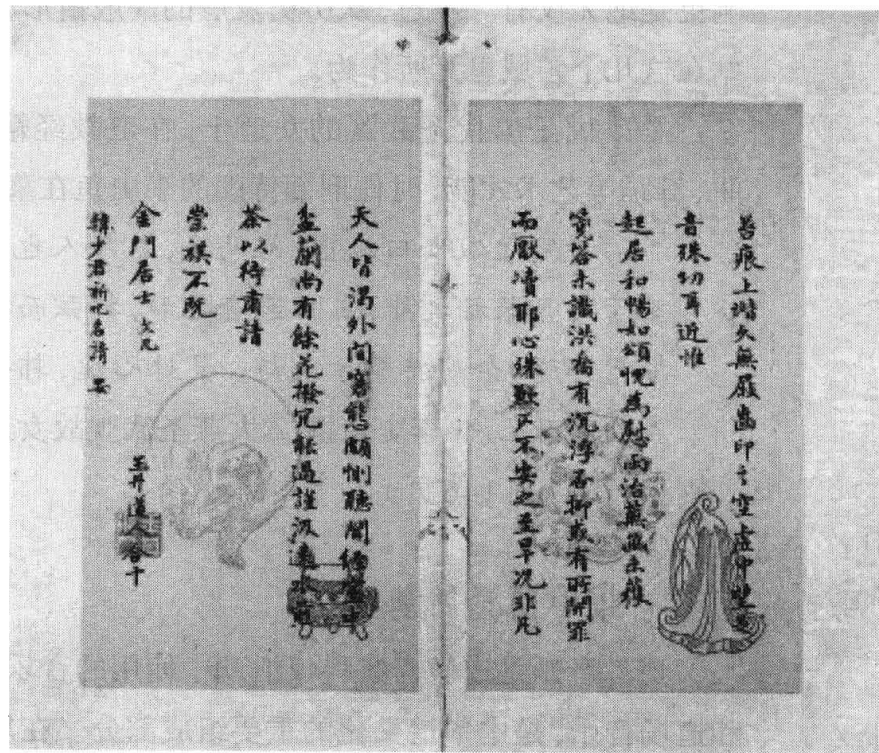 苔痕上堦久無屐齒印之空虛中望足
音殊切耳近惟
起居和暢如頌怳為慰兩治蕪函未穫
賞答未識洪喬有沉浮否抑或有所開罪
而厭瀆耶心殊歉仄不安之至旱況非凡
天人皆渴外間窘態頗惻聽聞
盆蘭尚有餘花撥冗能過謹汲遠水煎
茶以待肅請
崇祺不既
金門居士
韓少君祈叱名請安
玉井道人合十